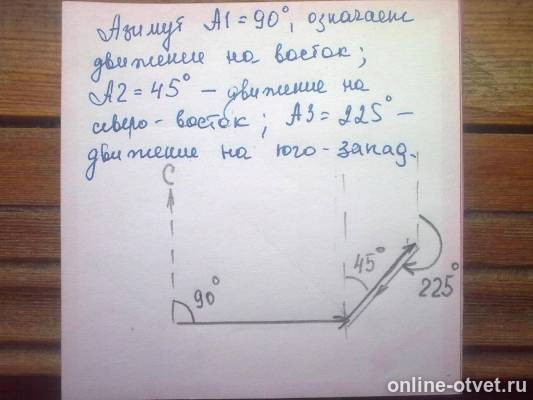 Азимут А1 = 90°, означает
движение на восток;
А2 = 45° – движение на
северо-восток; А3 = 225° –
движение на юго-запад.
С
90°
45°
225°
online-otvet.ru